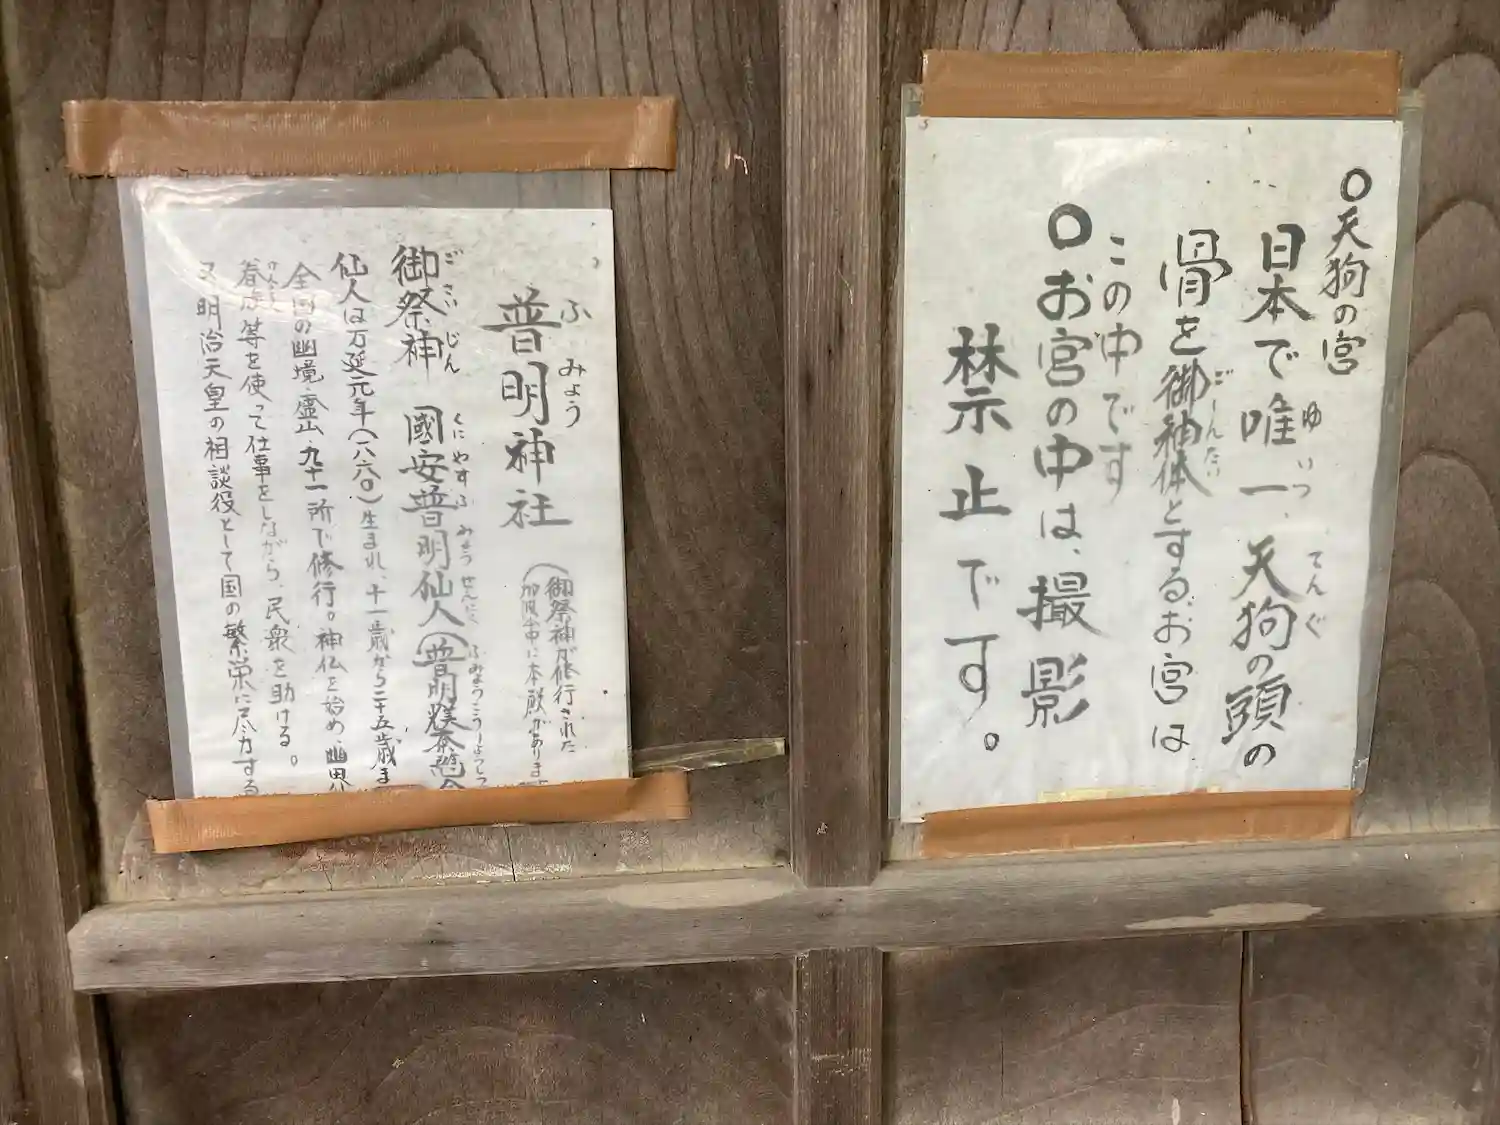 ○天狗の宮
日本で唯一、天狗の頭の
ゆいつ
てんぐ
骨を御神体とするお宮は
ごしんたい
この中です
○お宮の中は、撮影
禁止です。
普明神社
ふみょう
(御祭神が修行された
中に本殿があります
御祭神 國安普明仙人(普明
ごさいじん
くにやすふみょうせんにん
仙人は万延元年(一八六〇)生まれ、十一歳から二十五歳ま
全国の幽境・霊山、九十一所で修行。神仏を始め、幽界
眷族等を使って仕事をしながら、民衆を助ける。
けんぞく
又、明治天皇の相談役として国の繁栄に尽力する